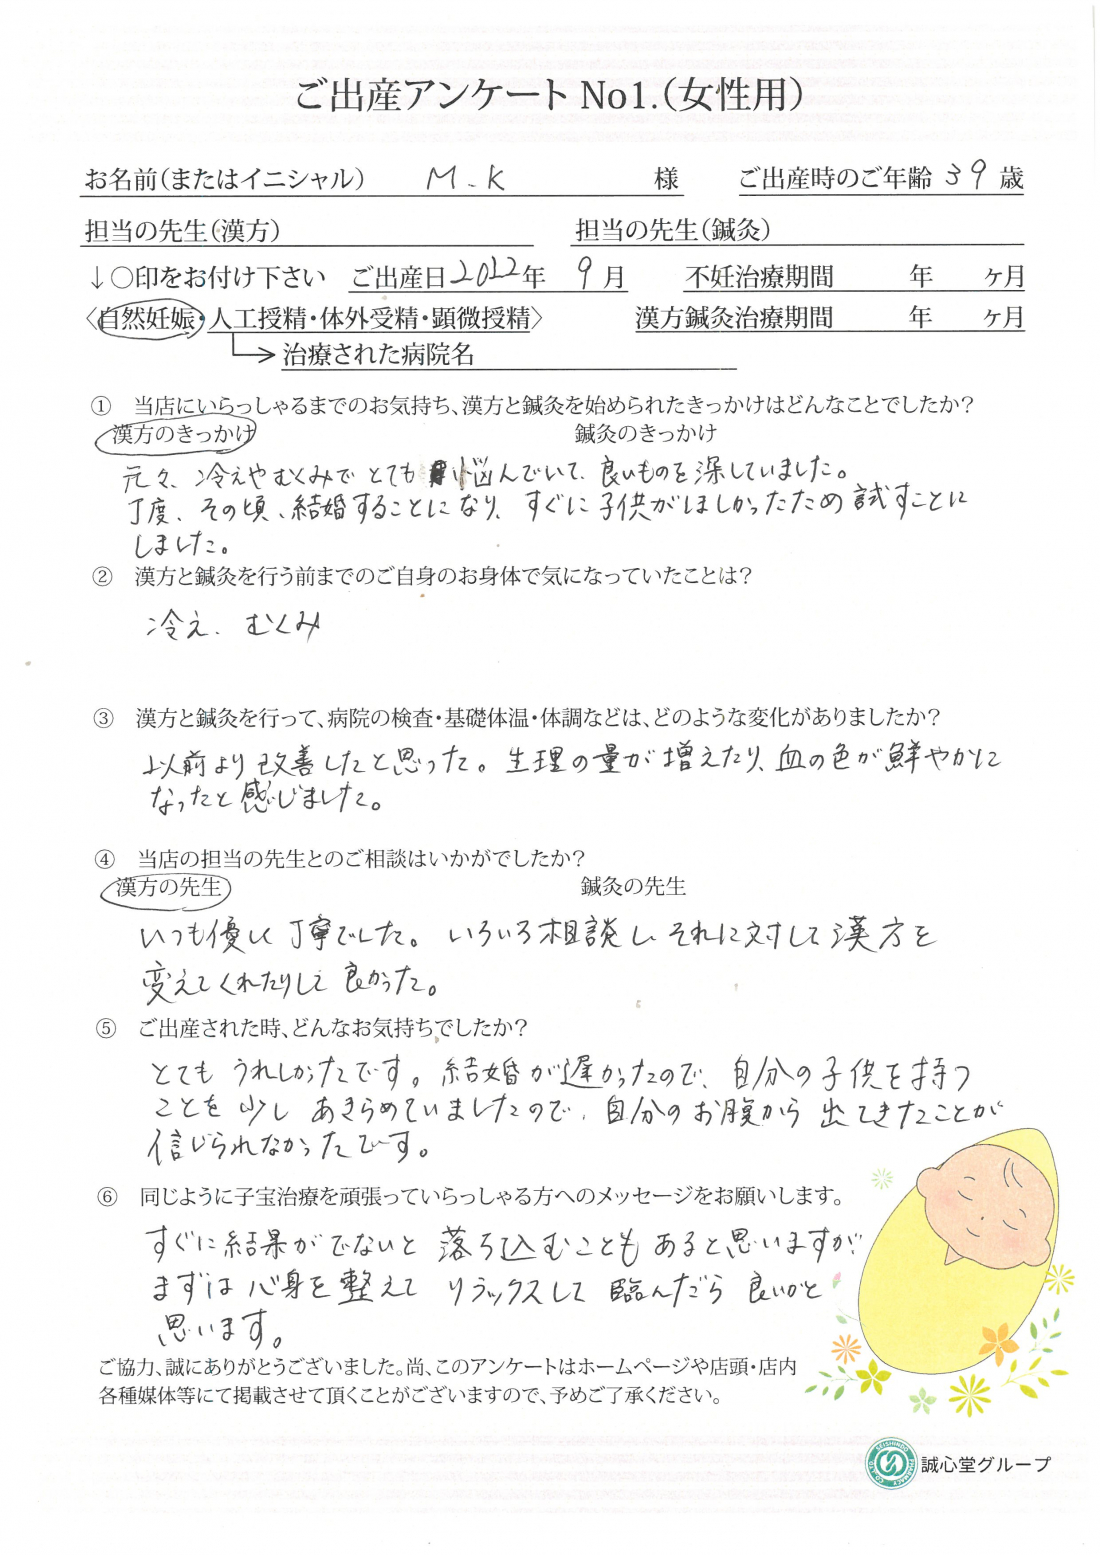 ご出産アンケート No1.（女性用）
お名前（またはイニシャル） M.K 様 ご出産時のご年齢 39 歳
担当の先生（漢方） 担当の先生（鍼灸）
↓○印をお付け下さい ご出産日 2022年 9月 不妊治療期間 年 ヶ月
〈自然妊娠・人工授精・体外受精・顕微授精〉 漢方鍼灸治療期間 年 ヶ月
治療された病院名
① 当店にいらっしゃるまでのお気持ち、漢方と鍼灸を始められたきっかけはどんなことでしたか？
漢方のきっかけ 鍼灸のきっかけ
元々、冷えやむくみでとても悩んでいて、良いものを深していました。
丁度、その頃、結婚することになり、すぐに子供がほしかったため試すことに
しました。
② 漢方と鍼灸を行う前までのご自身のお身体で気になっていたことは？
冷え、むくみ
③ 漢方と鍼灸を行って、病院の検査・基礎体温・体調などは、どのような変化がありましたか？
以前より改善したと思った。生理の量が増えたり、血の色が鮮やかに
なったと感じました。
④ 当店の担当の先生とのご相談はいかがでしたか？
漢方の先生 鍼灸の先生
いつも優しく丁寧でした。いろいろ相談し、それに対して漢方を
変えてくれたりして良かった。
⑤ ご出産された時、どんなお気持ちでしたか？
とてもうれしかったです。結婚が遅かったので、自分の子供を持つ
ことを少しあきらめていましたので、自分のお腹から出てきたことが
信じられなかったです。
⑥ 同じように子宝治療を頑張っていらっしゃる方へのメッセージをお願いします。
すぐに結果がでないと落ち込むこともあると思いますが
まずは心身を整えてリラックスして臨んだら良いかと
思います。
ご協力、誠にありがとうございました。尚、このアンケートはホームページや店頭・店内
各種媒体等にて掲載させて頂くことがございますので、予めご了承ください。
誠心堂グループ